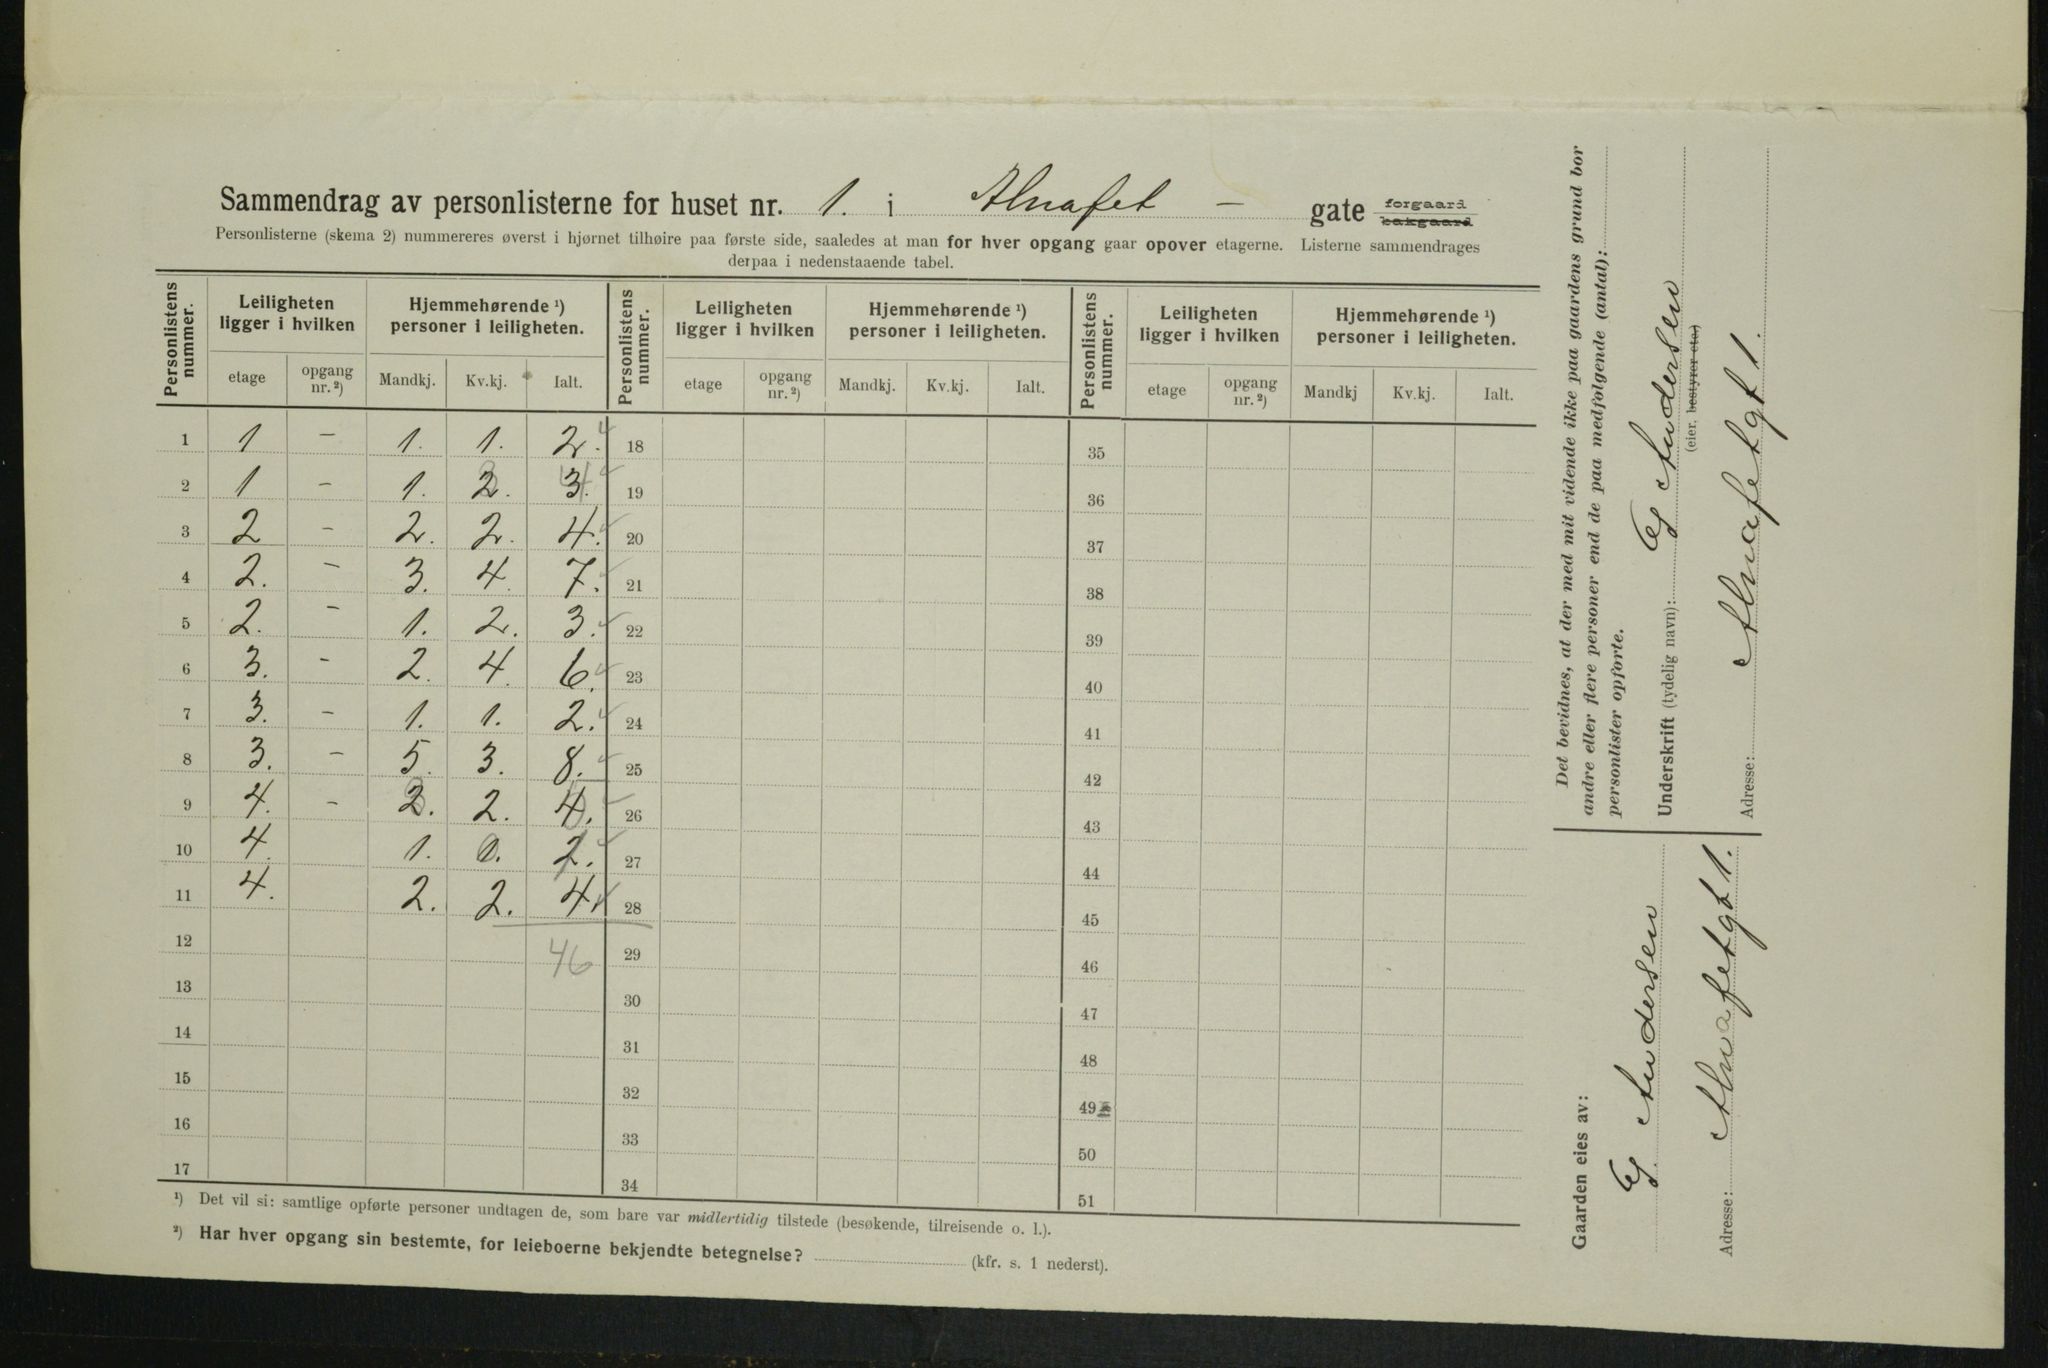 Sammendrag av personlisterne for huset nr. 1. i Alnafet - gate forgaard bakgaard
Personlisterne (skema 2) nummereres øverst i hjørnet tilhøire paa første side, saaledes at man for hver opgang gaar opover etagerne. Listerne sammendrages
derpaa i nedenstaaende tabel.
Personlistens nummer. Leiligheten ligger i hvilken Hjemmehørende ¹) personer i leiligheten. Personlistens nummer. Leiligheten ligger i hvilken Hjemmehørende ¹) personer i leiligheten. Personlistens nummer. Leiligheten ligger i hvilken Hjemmehørende ¹) personer i leiligheten.
etage opgang nr. ²) Mandkj. Kv.kj. Ialt. etage opgang nr. ²) Mandkj. Kv.kj. Ialt. etage opgang nr. ²) Mandkj Kv.kj. Ialt.
1 1 – 1. 1. 2. 18 35
2 1 – 1. 2. 3. 19 36
3 2 – 2. 2. 4. 20 37
4 2. – 3. 4. 7. 21 38
5 2. – 1. 2. 3. 22 39
6 3. – 2. 4. 6. 23 40
7 3. – 1. 1. 2. 24 41
8 3. – 5. 3. 8. 25 42
9 4. – 2. 2. 4. 26 43
10 4. 1. 27 44
11 4. 2. 2. 4. 28 45
12 46 29 46
13 30 47
14 31 48
15 32 49
16 33 50
17 34 51
¹) Det vil si: samtlige opførte personer undtagen de, som bare var midlertidig tilstede (besøkende, tilreisende o. l.).
²) Har hver opgang sin bestemte, for leieboerne bekjendte betegnelse? (kfr. s. 1 nederst).
Det bevidnes, at der med mit vidende ikke paa gaardens grund bor
andre eller flere personer end de paa medfølgende (antal):
personlister opførte.
Underskrift (tydelig navn): Andersen
(eier, bestyrer etc.)
Adresse: Alnafetgt 1.
Gaarden eies av:
Andersen
Adresse: Alnafetgt 1.